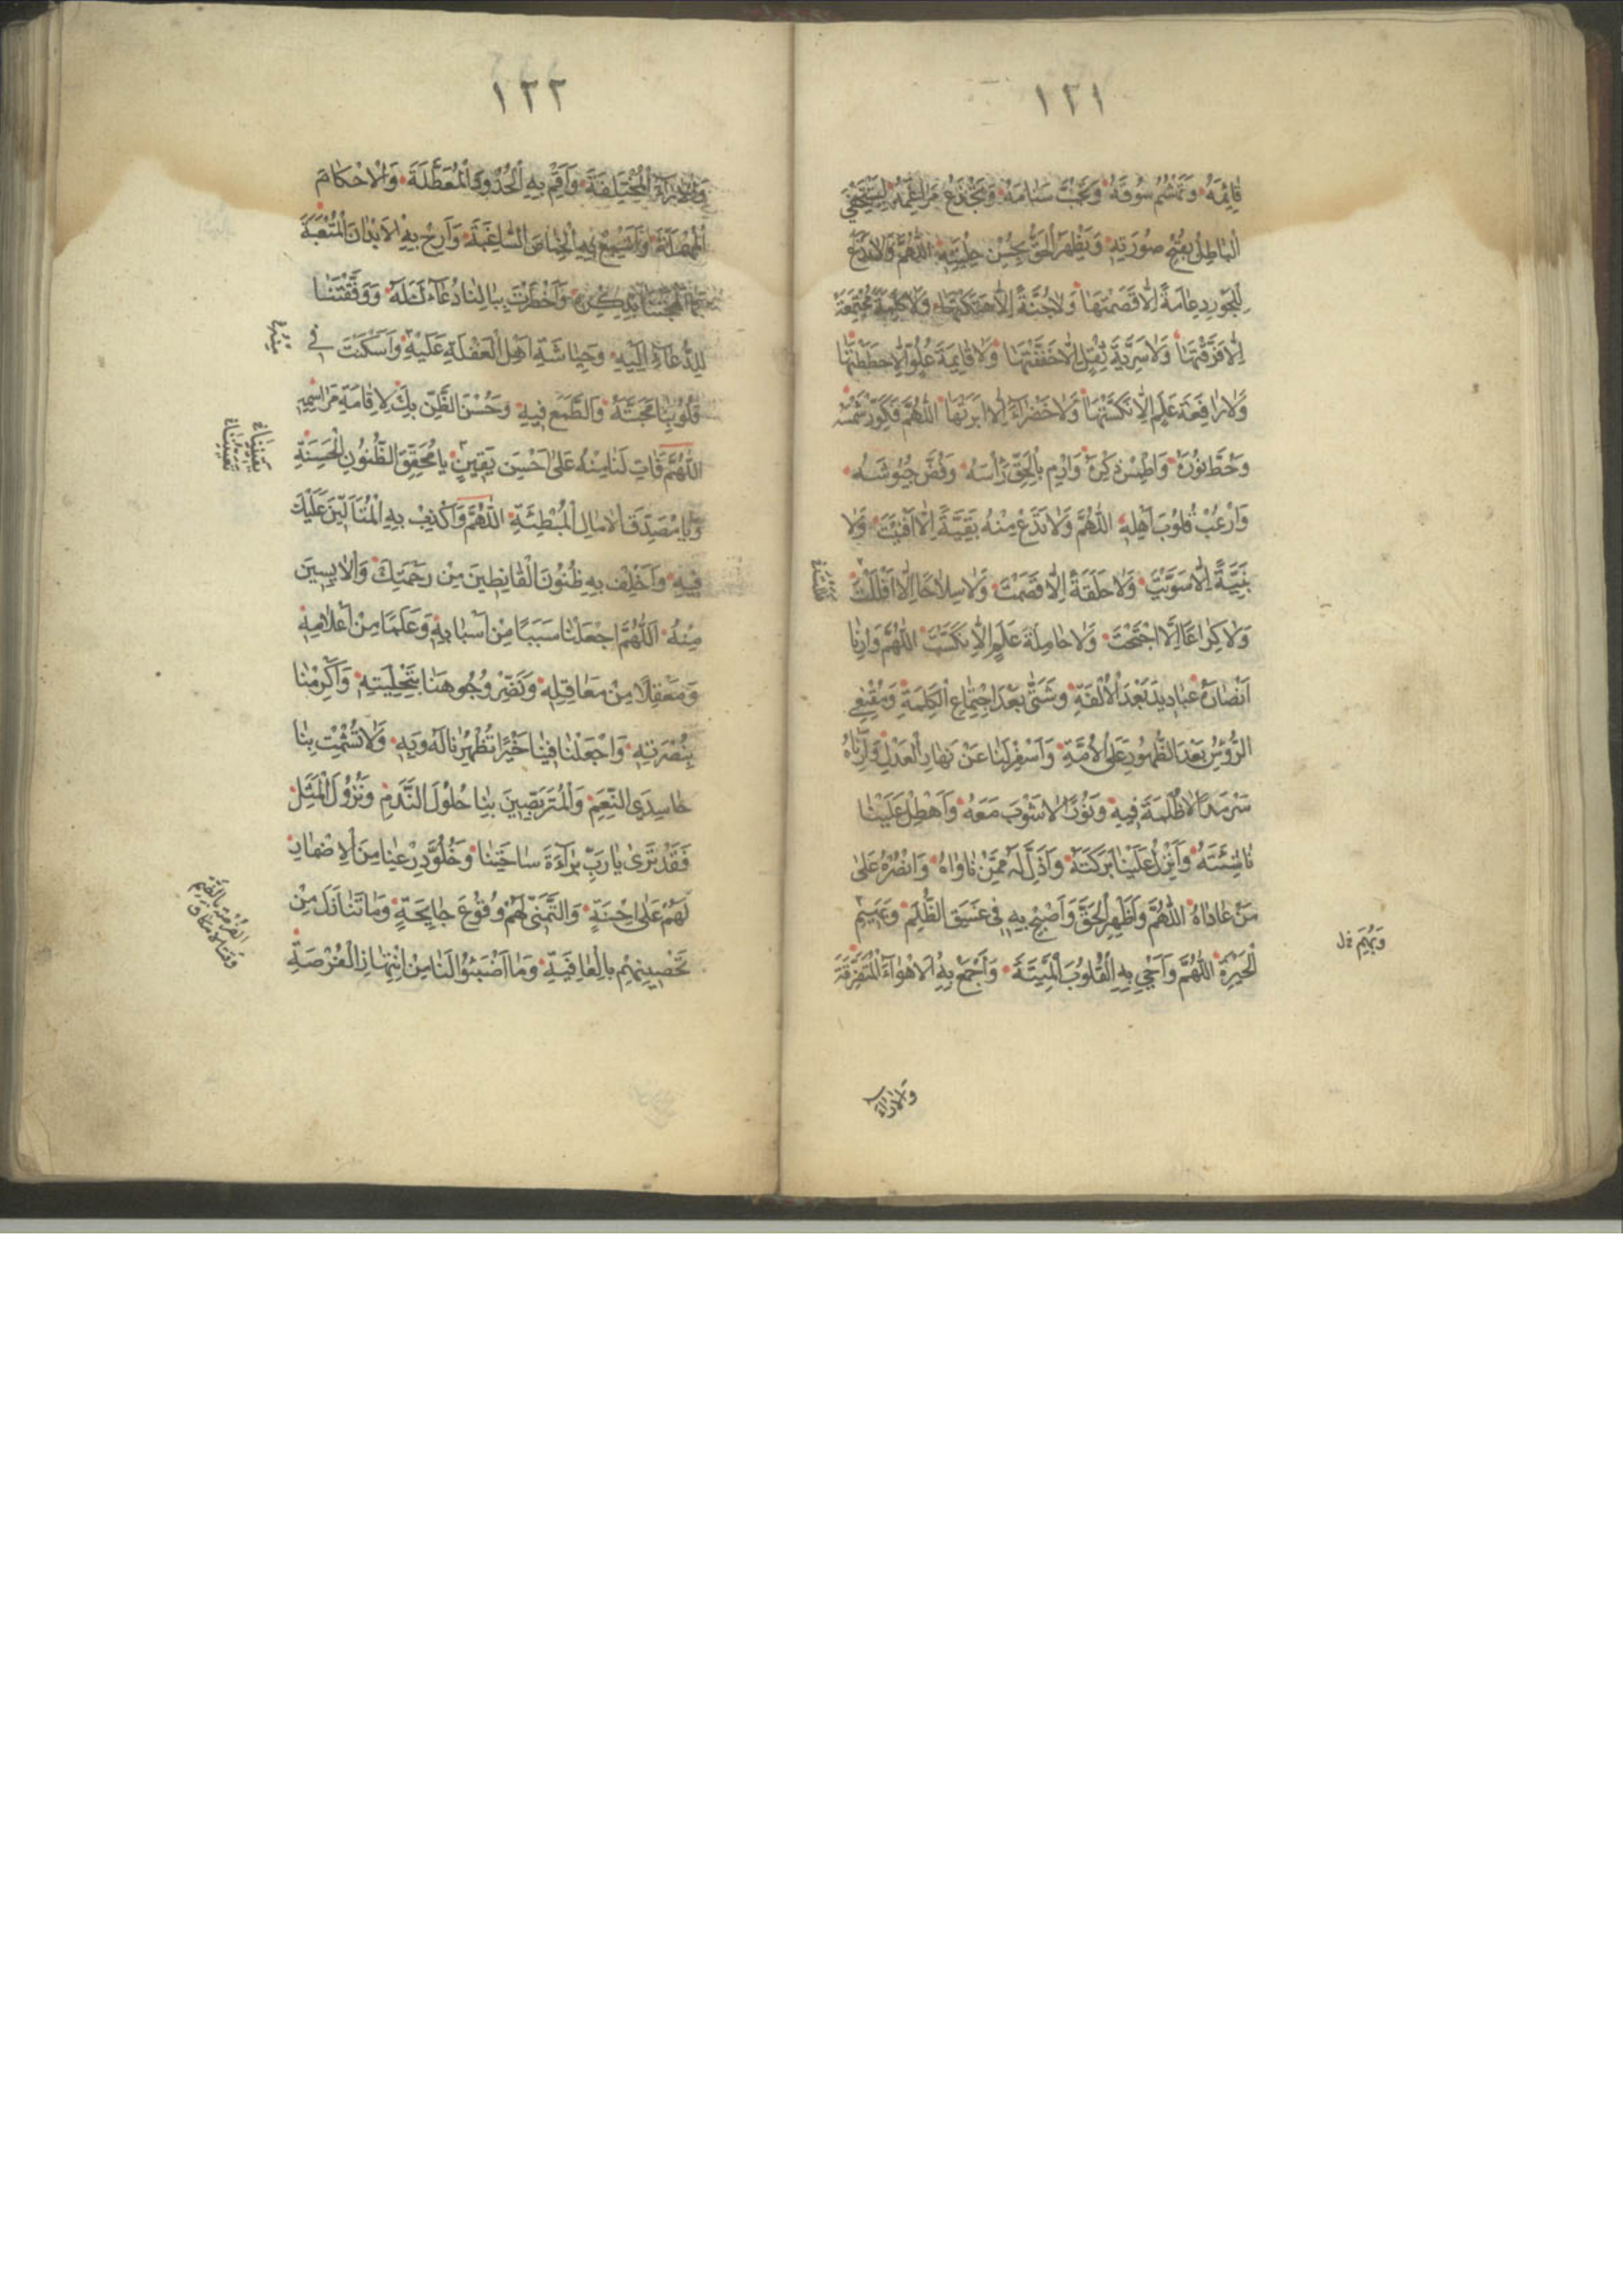 ١٢١
قَائِمَهُ وَتَهْشِمَ سُوقَهُ وَتَجُبَّ سَنَامَهُ وَتَجْذَعَ مَرَاغِمَهُ لِيَسْتَخْفِيَ
الْبَاطِلُ بِقُبْحِ صُورَتِهِ وَيَظْهَرَ الْحَقُّ بِحُسْنِ حِلْيَتِهِ اَللّٰهُمَّ وَلَا تَدَعْ
لِلْجَوْرِ دِعَامَةً اِلَّا قَصَمْتَهَا وَلَا جُنَّةً اِلَّا هَتَكْتَهَا وَلَا كَلِمَةً مُجْتَمِعَةً
اِلَّا فَرَّقْتَهَا وَلَا سَرِيَّةَ ثِقْلٍ اِلَّا خَفَّفْتَهَا وَلَا قَائِمَةَ عُلُوٍّ اِلَّا حَطَطْتَهَا
وَلَا رَافِعَةَ عَلَمٍ اِلَّا نَكَّسْتَهَا وَلَا خَضْرَاءَ اِلَّا اَبَرْتَهَا اَللّٰهُمَّ فَكَوِّرْ شَمْسَهُ
وَحُطَّ نُورَهُ وَاطْمِسْ ذِكْرَهُ وَارْمِ بِالْحَقِّ رَأْسَهُ وَفُضَّ جُيُوشَهُ
وَارْعَبْ قُلُوبَ اَهْلِهِ اَللّٰهُمَّ وَلَا تَدَعْ مِنْهُ بَقِيَّةً اِلَّا اَفْنَيْتَ وَلَا
بَنِيَّةً اِلَّا سَوَّيْتَ وَلَا حَلَقَةً اِلَّا قَصَمْتَ وَلَا سِلَاحًا اِلَّا اَفْلَلْتَ
وَلَا كُرَاعًا اِلَّا اجْتَحْتَ وَلَا حَامِلَةَ عَلَمٍ اِلَّا نَكَّسْتَ اَللّٰهُمَّ وَاَرِنَا
اَنْصَارَهُ عَبَادِيدَ بَعْدَ الْاُلْفَةِ وَشَتّٰى بَعْدَ اجْتِمَاعِ الْكَلِمَةِ وَمُقْنِعِي
الرُّؤُسِ بَعْدَ الظُّهُورِ عَلَى الْاُمَّةِ وَاَسْفِرْ لَنَا عَنْ نَهَارِ الْعَدْلِ وَاَرِنَاهُ
سَرْمَدًا لَا ظُلْمَةَ فِيهِ وَنُورًا لَا شَوْبَ مَعَهُ وَاَهْطِلْ عَلَيْنَا
نَاشِئَتَهُ وَاَنْزِلْ عَلَيْنَا بَرَكَتَهُ وَاَدِلْ لَهُ مِمَّنْ نَاوَاهُ وَانْصُرْهُ عَلٰى
مَنْ عَادَاهُ اَللّٰهُمَّ وَاَظْهِرِ الْحَقَّ وَاَصْبِحْ بِهِ فِي غَسَقِ الظُّلَمِ وَ
وَبُهَمِ خ ل
الْحَيْرَةِ اَللّٰهُمَّ وَاَحْيِ بِهِ الْقُلُوبَ الْمَيِّتَةَ وَاجْمَعْ بِهِ الْاَهْوَاءَ الْمُتَفَرِّقَةَ
وَالْاٰرَاءَ
١٢٢
وَالْاٰرَاءَ الْمُخْتَلِفَةَ وَاَقِمْ بِهِ الْحُدُودَ الْمُعَطَّلَةَ وَالْاَحْكَامَ
الْمُهْمَلَةَ وَاَشْبِعْ بِهِ الْخِمَاصَ السَّاغِبَةَ وَاَرِحْ بِهِ الْاَبْدَانَ الْمُتْعَبَةَ
كَمَا اَلْهَجْتَنَا بِذِكْرِهِ وَاَخْطَرْتَ بِبَالِنَا دُعَاءَكَ لَهُ وَوَفَّقْتَنَا
لِلدُّعَاءِ اِلَيْهِ وَحِيَاشَةِ اَهْلِ الْغَفْلَةِ عَلَيْهِ وَاَسْكَنْتَ فِي
قُلُوبِنَا مَحَبَّتَهُ وَالطَّمَعَ فِيهِ وَحُسْنَ الظَّنِّ بِكَ لِاِقَامَةِ مَرَاسِمِهِ
اَللّٰهُمَّ فَاٰتِ لَنَا مِنْهُ عَلٰى اَحْسَنِ يَقِينٍ يَا مُحَقِّقَ الظُّنُونِ الْحَسَنَةِ
وَيَا مُصَدِّقَ الْاٰمَالِ الْمُبْطِئَةِ اَللّٰهُمَّ وَاَكْذِبْ بِهِ الْمُتَاَلِّينَ عَلَيْكَ
فِيهِ وَاَخْلِفْ بِهِ ظُنُونَ الْقَانِطِينَ مِنْ رَحْمَتِكَ وَالْاٰيِسِينَ
مِنْهُ اَللّٰهُمَّ اجْعَلْنَا سَبَبًا مِنْ اَسْبَابِهِ وَعَلَمًا مِنْ اَعْلَامِهِ
وَمَعْقِلًا مِنْ مَعَاقِلِهِ وَنَضِّرْ وُجُوهَنَا بِتَحْلِيَتِهِ وَاَكْرِمْنَا
بِنُصْرَتِهِ وَاجْعَلْ فِينَا خَيْرًا تُظْهِرُنَا لَهُ وَبِهِ وَلَا تُشْمِتْ بِنَا
حَاسِدِي النِّعَمِ وَالْمُتَرَبِّصِينَ بِنَا حُلُولَ النَّدَمِ وَنُزُولَ الْمُثَلِ
فَقَدْ تَرٰى يَا رَبِّ بَرَاءَةَ سَاحَتِنَا وَخُلُوَّ ذَرْعِنَا مِنَ الْاِضْمَارِ
لَهُمْ عَلٰى اِحْنَةٍ وَالتَّمَنِّي لَهُمْ وُقُوعَ جَايِحَةٍ وَمَا تَنَازَلَ مِنْ
تَحْصِينِهِمْ بِالْعَافِيَةِ وَمَا اَضْبَئُوا لَنَا مِنِ انْتِهَازِ الْفُرْصَةِ